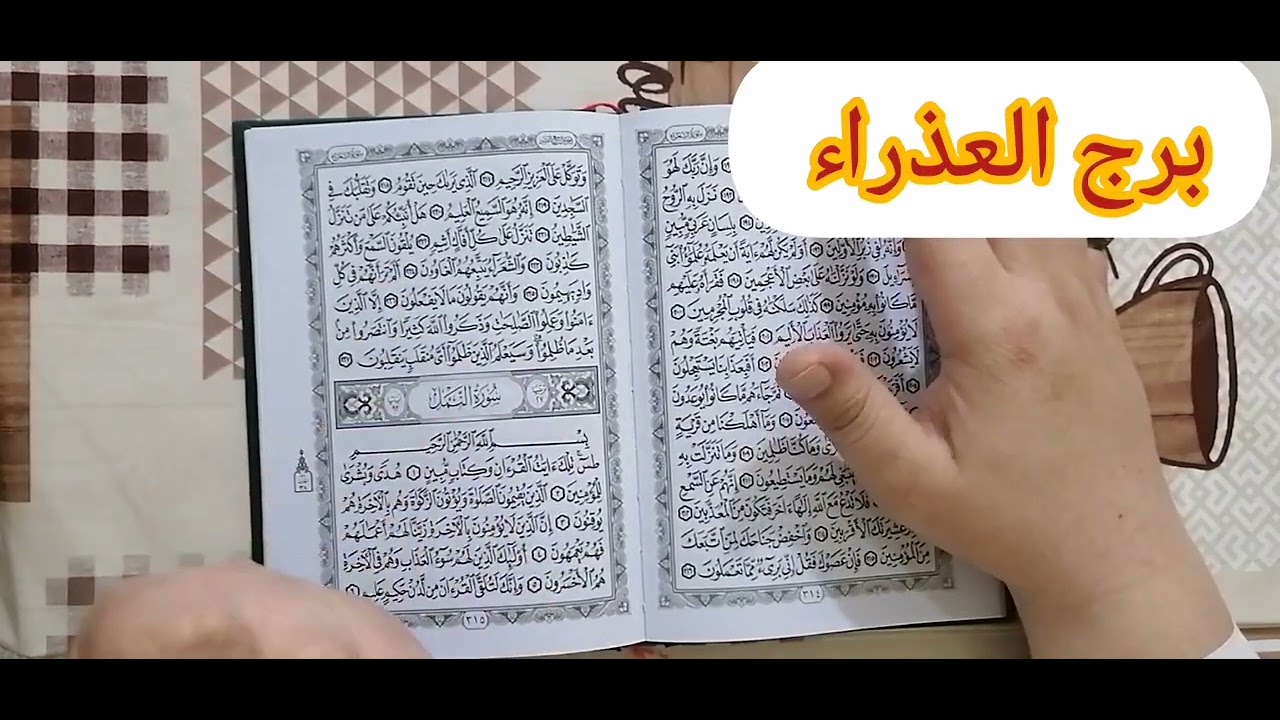 برج العذراء
وَإِنَّ رَبَّكَ لَهُوَ
نَزَلَ بِهِ الرُّوحُ
بِلِسَانٍ عَرَبِيٍّ مُّبِينٍ
وَإِنَّهُ لَفِي زُبُرِ الْأَوَّلِينَ ١٩٦ أَوَلَمْ يَكُن لَّهُمْ ءَايَةً أَن يَعْلَمَهُ عُلَمَٰٓؤُا۟ بَنِىٓ
وَلَوْ نَزَّلْنَٰهُ عَلَىٰ بَعْضِ الْأَعْجَمِينَ ١٩٨ فَقَرَأَهُ عَلَيْهِم
مَّا كَانُوا بِهِ مُؤْمِنِينَ ١٩٩ كَذَٰلِكَ سَلَكْنَٰهُ فِي قُلُوبِ الْمُجْرِمِينَ ٢٠٠
لَا يُؤْمِنُونَ بِهِ حَتَّىٰ يَرَوُا الْعَذَابَ الْأَلِيمَ ٢٠١ فَيَأْتِيَهُم بَغْتَةً وَهُمْ
لَا يَشْعُرُونَ ٢٠٢ أَفَبِعَذَابِنَا يَسْتَعْجِلُونَ
جَاءَهُم مَّا كَانُوا يُوعَدُونَ
وَمَا أَهْلَكْنَا مِن قَرْيَةٍ
وَمَا كُنَّا ظَٰلِمِينَ ٢٠٩ وَمَا تَنَزَّلَتْ بِهِ
يَنۢبَغِي لَهُمْ وَمَا يَسْتَطِيعُونَ ٢١١ إِنَّهُمْ عَنِ السَّمْعِ
فَلَا تَدْعُ مَعَ اللَّهِ إِلَٰهًا ءَاخَرَ فَتَكُونَ مِنَ الْمُعَذَّبِينَ ٢١٣
عَشِيرَتَكَ الْأَقْرَبِينَ ٢١٤ وَاخْفِضْ جَنَاحَكَ لِمَنِ اتَّبَعَكَ
مِنَ الْمُؤْمِنِينَ ٢١٥ فَإِنْ عَصَوْكَ فَقُلْ إِنِّي بَرِيءٌ مِّمَّا تَعْمَلُونَ ٢١٦
٣١٤
وَتَوَكَّلْ عَلَى الْعَزِيزِ الرَّحِيمِ ٢١٧ الَّذِي يَرَىٰكَ حِينَ تَقُومُ ٢١٨ وَتَقَلُّبَكَ فِي
السَّٰجِدِينَ ٢١٩ إِنَّهُ هُوَ السَّمِيعُ الْعَلِيمُ ٢٢٠ هَلْ أُنَبِّئُكُمْ عَلَىٰ مَن تَنَزَّلُ
الشَّيَٰطِينُ ٢٢١ تَنَزَّلُ عَلَىٰ كُلِّ أَفَّاكٍ أَثِيمٍ ٢٢٢ يُلْقُونَ السَّمْعَ وَأَكْثَرُهُمْ
كَٰذِبُونَ ٢٢٣ وَالشُّعَرَاءُ يَتَّبِعُهُمُ الْغَاوُۥنَ ٢٢٤ أَلَمْ تَرَ أَنَّهُمْ فِي كُلِّ
وَادٍ يَهِيمُونَ ٢٢٥ وَأَنَّهُمْ يَقُولُونَ مَا لَا يَفْعَلُونَ ٢٢٦ إِلَّا الَّذِينَ
ءَامَنُوا وَعَمِلُوا الصَّٰلِحَٰتِ وَذَكَرُوا اللَّهَ كَثِيرًا وَانتَصَرُوا مِنۢ
بَعْدِ مَا ظُلِمُوا وَسَيَعْلَمُ الَّذِينَ ظَلَمُوا أَيَّ مُنقَلَبٍ يَنقَلِبُونَ ٢٢٧
سُورَةُ النَّمْلِ
بِسْمِ اللَّهِ الرَّحْمَٰنِ الرَّحِيمِ
طسٓ تِلْكَ ءَايَٰتُ الْقُرْءَانِ وَكِتَابٍ مُّبِينٍ ١ هُدًى وَبُشْرَىٰ
لِلْمُؤْمِنِينَ ٢ الَّذِينَ يُقِيمُونَ الصَّلَوٰةَ وَيُؤْتُونَ الزَّكَوٰةَ وَهُم بِالْءَاخِرَةِ هُمْ
يُوقِنُونَ ٣ إِنَّ الَّذِينَ لَا يُؤْمِنُونَ بِالْءَاخِرَةِ زَيَّنَّا لَهُمْ أَعْمَٰلَهُمْ
فَهُمْ يَعْمَهُونَ ٤ أُولَٰئِكَ الَّذِينَ لَهُمْ سُوءُ الْعَذَابِ وَهُمْ فِي الْءَاخِرَةِ
هُمُ الْأَخْسَرُونَ ٥ وَإِنَّكَ لَتُلَقَّى الْقُرْءَانَ مِن لَّدُنْ حَكِيمٍ عَلِيمٍ ٦
٣١٥